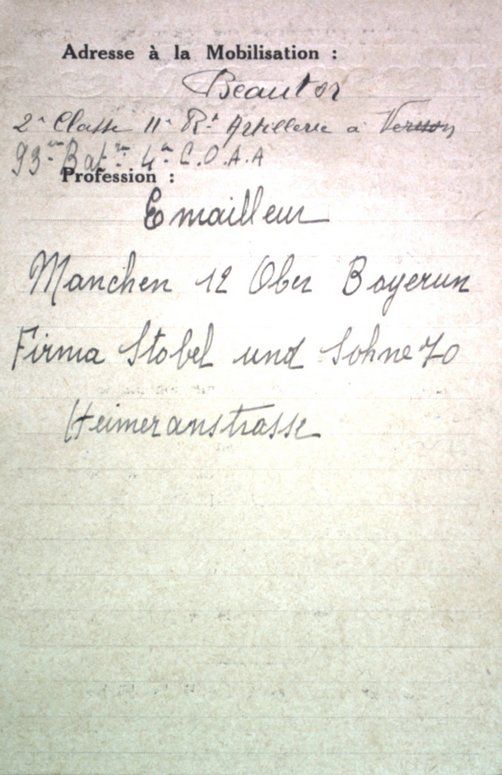 Adresse à la Mobilisation :
Beautor
2e Classe 11e Rt Artillerie à Vernon
93em Batie 4e C.O.A.A
Profession :
Emailleur
Manchen 12 Ober Bayerun
Firma Stobel und Sohne 70
Heimeranstrasse